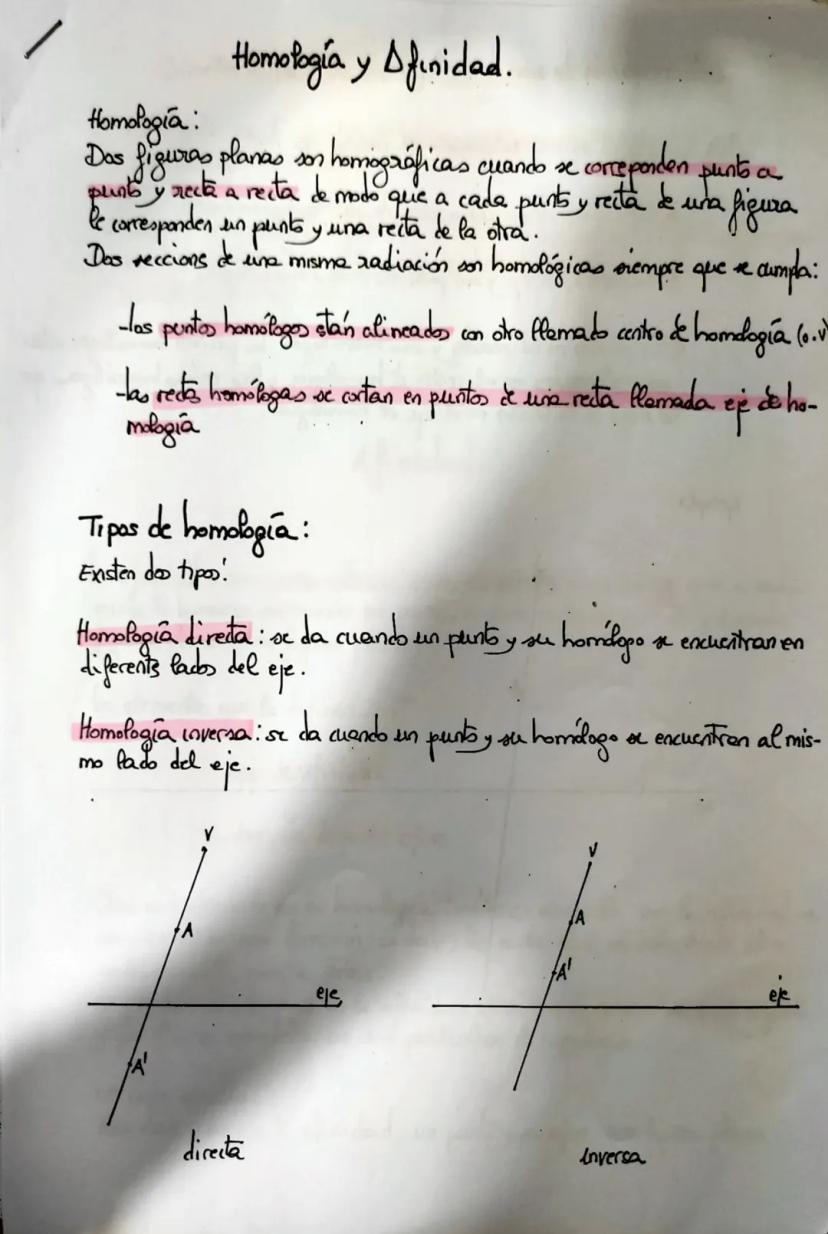 Homología y Afinidad.
Homología:
Dos figuras planas son homográficas cuando se correponden punto a
punto y recta a recta de modo que a cada punto y recta de una figura
le corresponden un punto y una recta de la otra.
Dos seccions de una misma radiación son homológicas siempre que se cumpla:
-los puntos homólogos están alineados con otro llamado centro de homología (o.v)
-las rectas homólogas se cortan en puntos de una recta llamada eje de ho-
mología
Tipos de homología:
Existen dos tipos:
Homología directa: se da cuando un punto y su homólogo se encuentran en
diferents lados del eje.
Homología inversa: se da cuando un punto y su homólogo se encuentran al mis-
mo lado del eje.
V
V
A
A
A'
eje
eje
A'
directa
inversa